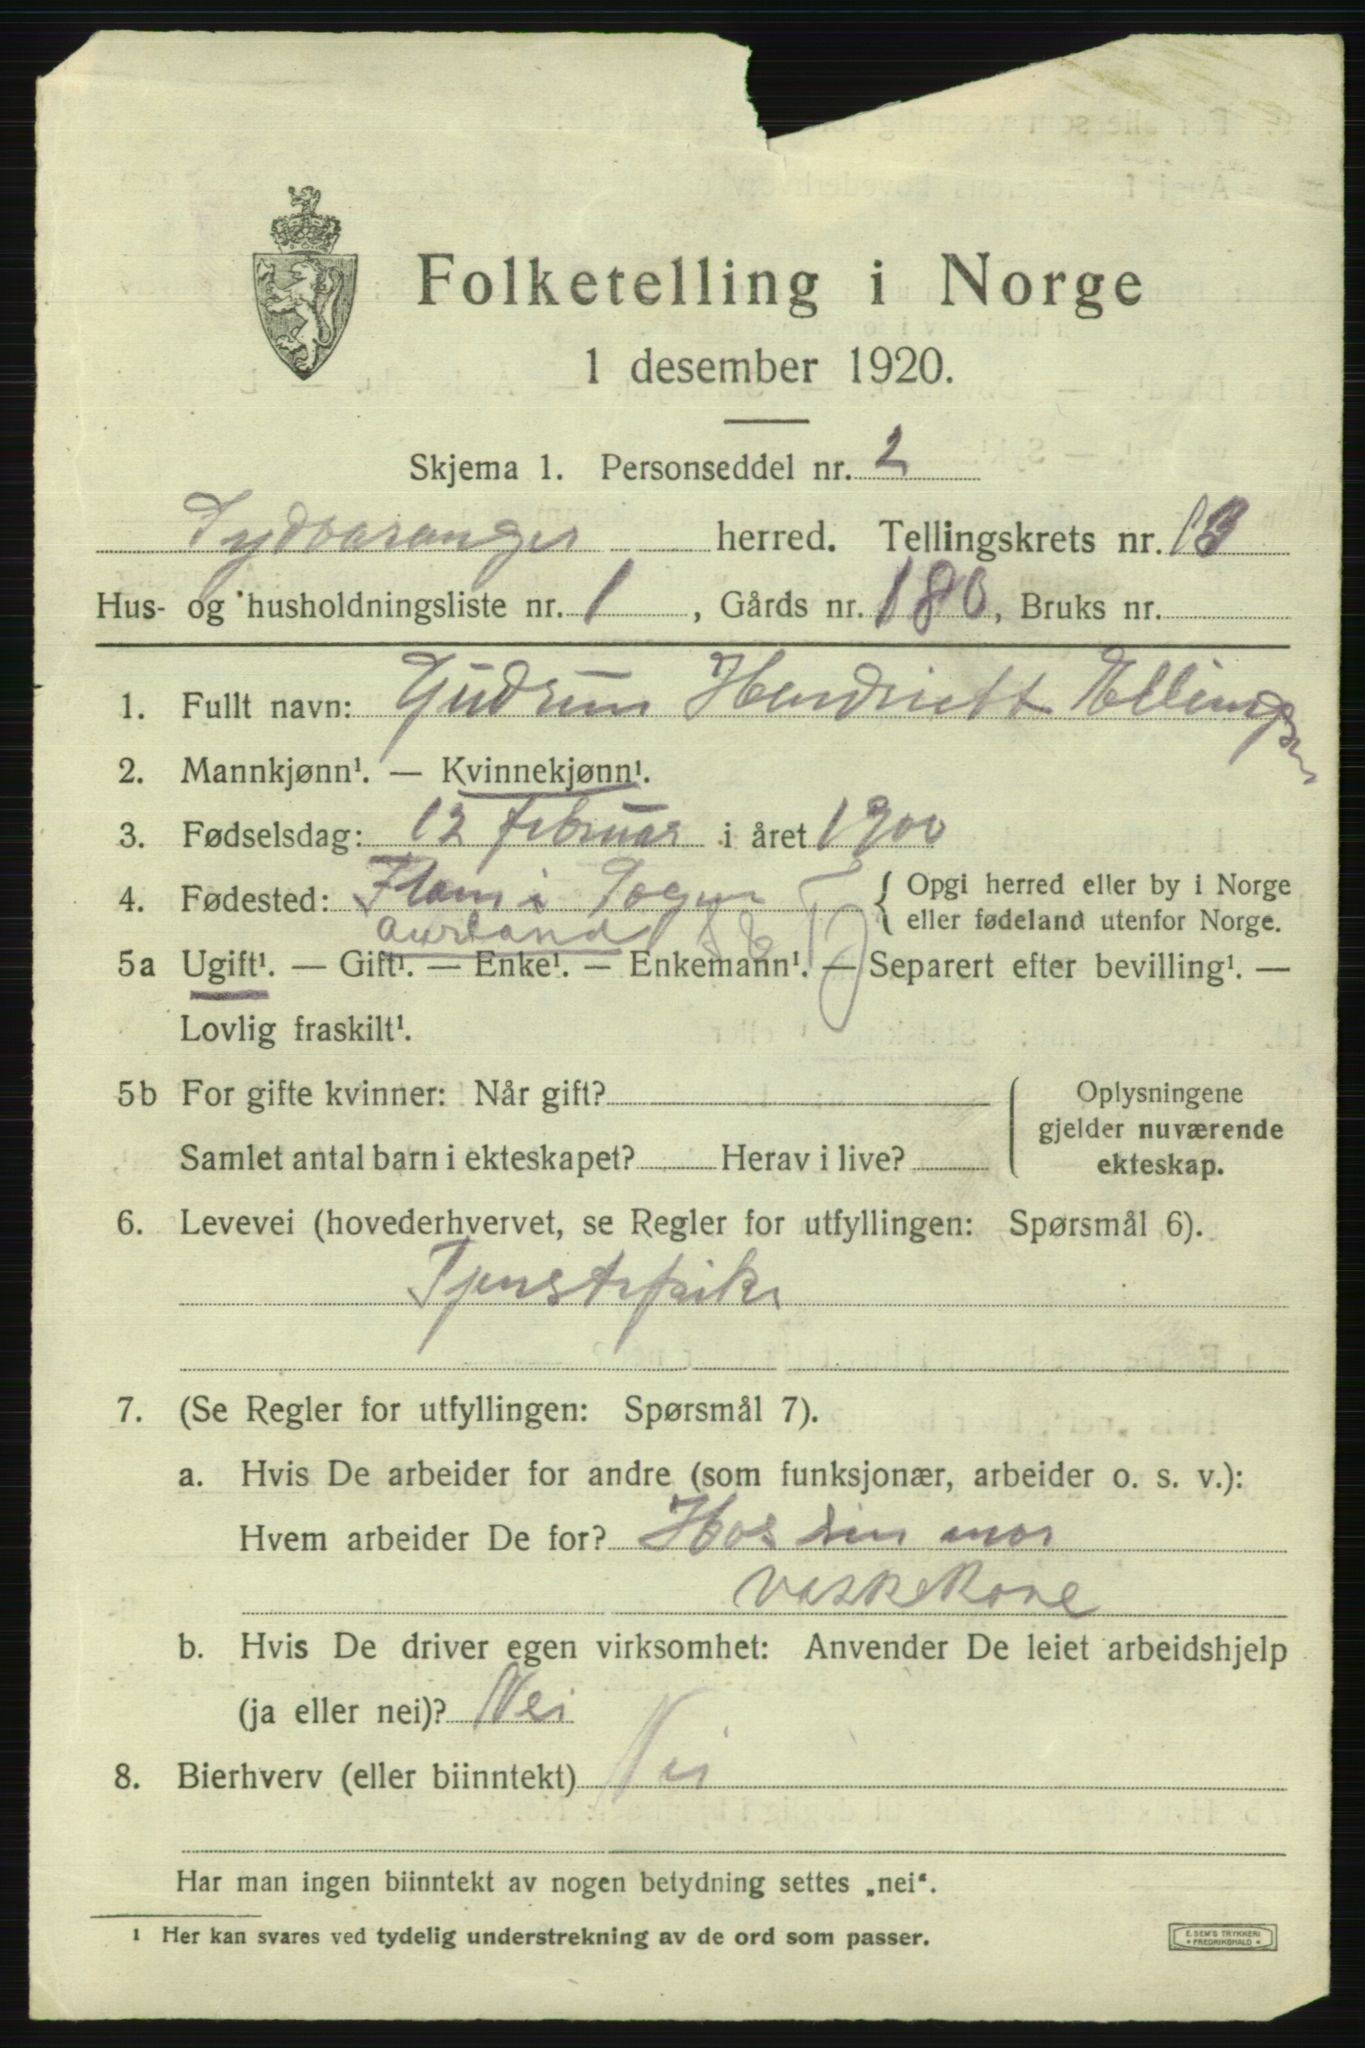 Folketelling i Norge
1 desember 1920.
Skjema 1. Personseddel nr. 2
Sydvaranger herred. Tellingskrets nr. 13
Hus- og husholdningsliste nr. 1, Gårds nr. 180, Bruks nr.
1. Fullt navn: Gudrun Hendriett Ellingsen
2. Mannkjønn¹. — Kvinnekjønn¹.
3. Fødselsdag: 12 februar i året 1900
4. Fødested: Flam i Sogn { Opgi herred eller by i Norge
eller fødeland utenfor Norge.
Aurland
5a Ugift¹. — Gift¹. — Enke¹. — Enkemann¹. — Separert efter bevilling¹. —
Lovlig fraskilt¹.
5b For gifte kvinner: Når gift?
Samlet antal barn i ekteskapet? Herav i live?
Oplysningene
gjelder nuværende
ekteskap.
6. Levevei (hovederhvervet, se Regler for utfyllingen: Spørsmål 6).
Tjenstepike
7. (Se Regler for utfyllingen: Spørsmål 7).
a. Hvis De arbeider for andre (som funksjonær, arbeider o. s. v.):
Hvem arbeider De for? Hos sin mor
vaskekone
b. Hvis De driver egen virksomhet: Anvender De leiet arbeidshjelp
(ja eller nei)? Nei
8. Bierhverv (eller biinntekt) Nei
Har man ingen biinntekt av nogen betydning settes „nei".
1 Her kan svares ved tydelig understrekning av de ord som passer.
E. SEM'S TRYKKERI
FREDRIKSHALD